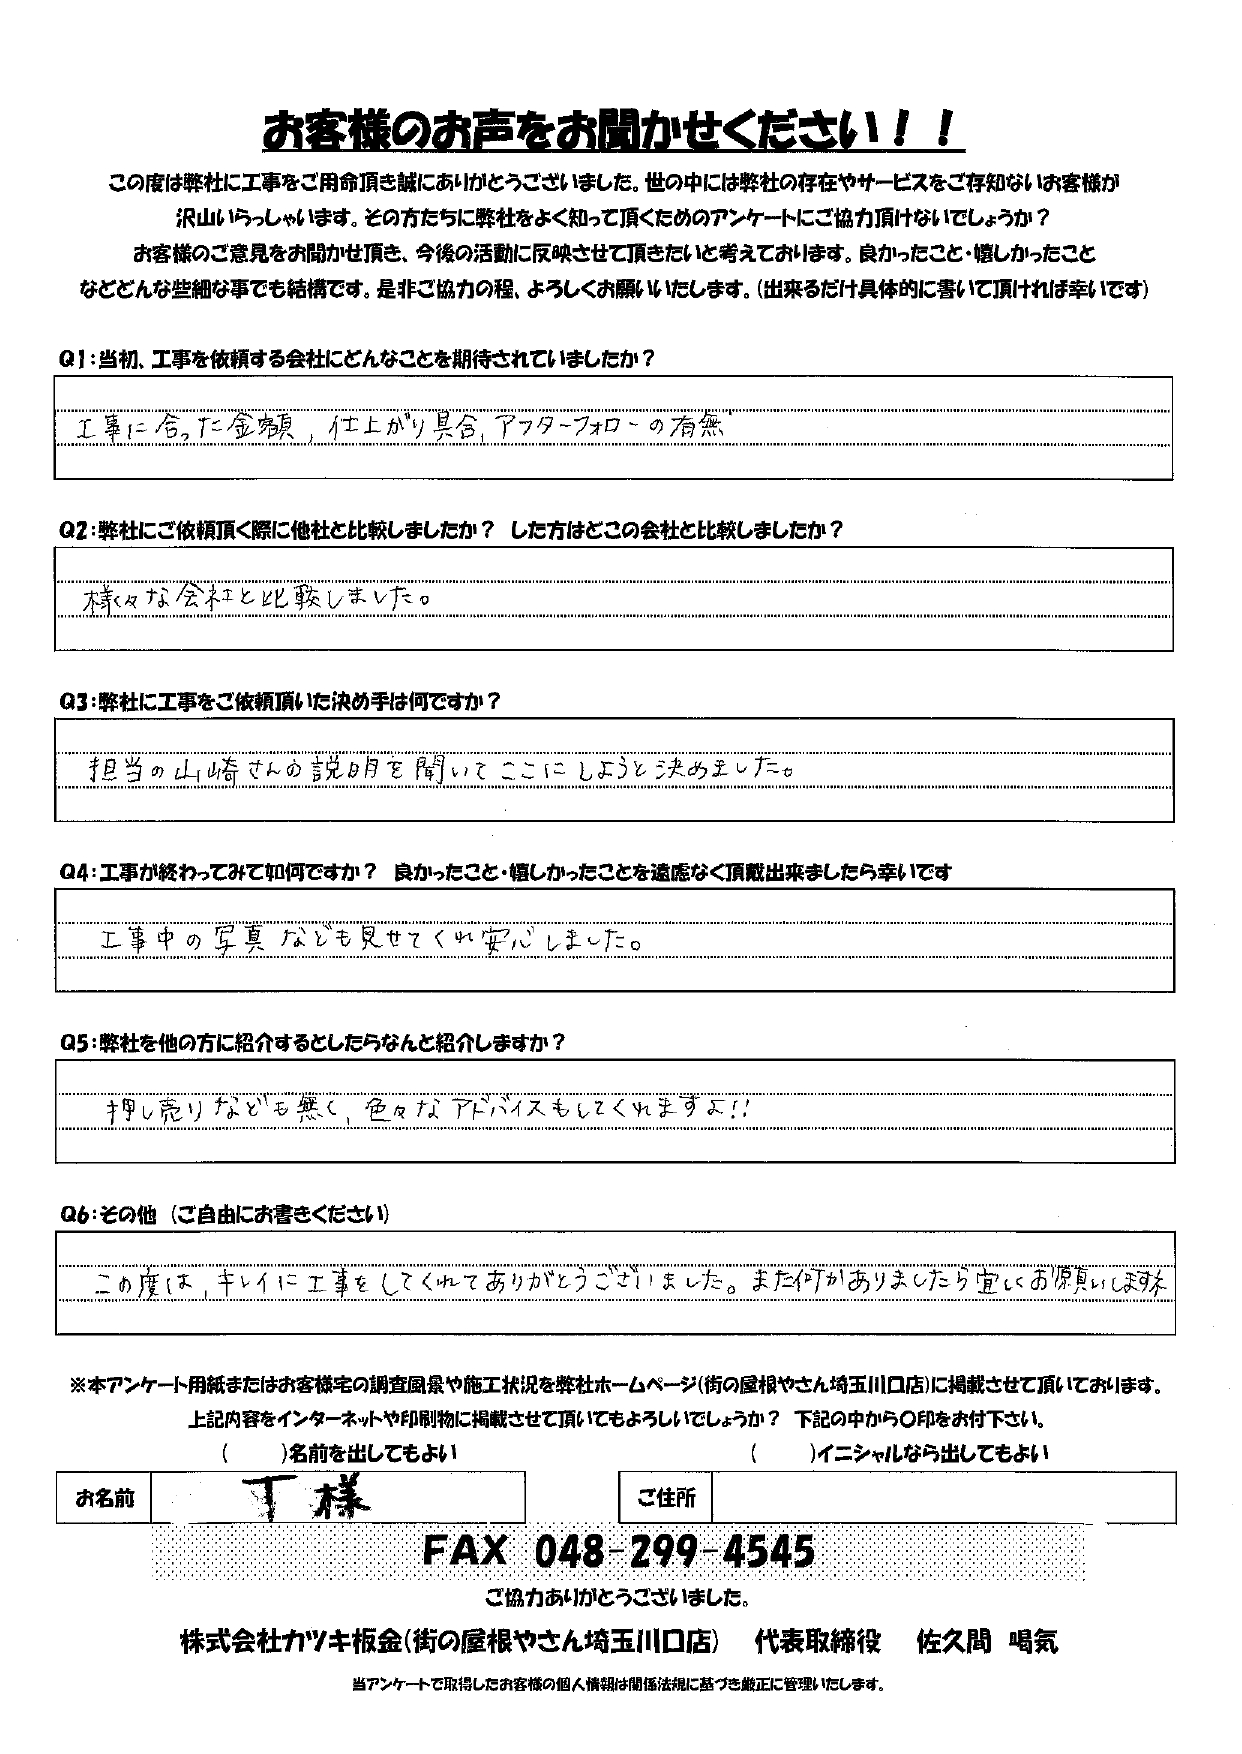 お客様のお声をお聞かせください！！
この度は弊社に工事をご用命頂き誠にありがとうございました。世の中には弊社の存在やサービスをご存知ないお客様が
沢山いらっしゃいます。その方たちに弊社をよく知って頂くためのアンケートにご協力頂けないでしょうか？
お客様のご意見をお聞かせ頂き、今後の活動に反映させて頂きたいと考えております。良かったこと・嬉しかったこと
などどんな些細な事でも結構です。是非ご協力の程、よろしくお願いいたします。(出来るだけ具体的に書いて頂ければ幸いです)
Q1：当初、工事を依頼する会社にどんなことを期待されていましたか？
工事に合った金額, 仕上がり具合, アフターフォローの有無
Q2：弊社にご依頼頂く際に他社と比較しましたか？ した方はどこの会社と比較しましたか？
様々な会社と比較しました。
Q3：弊社に工事をご依頼頂いた決め手は何ですか？
担当の山崎さんの説明を聞いてここにしようと決めました。
Q4：工事が終わってみて如何ですか？ 良かったこと・嬉しかったことを遠慮なく頂戴出来ましたら幸いです
工事中の写真なども見せてくれ安心しました。
Q5：弊社を他の方に紹介するとしたらなんと紹介しますか？
押し売りなども無く, 色々なアドバイスもしてくれますよ!!
Q6：その他 (ご自由にお書きください)
この度は, キレイに工事をしてくれてありがとうございました。また何かありましたら宜しくお願いします
※本アンケート用紙またはお客様宅の調査風景や施工状況を弊社ホームページ(街の屋根やさん埼玉川口店)に掲載させて頂いております。
上記内容をインターネットや印刷物に掲載させて頂いてもよろしいでしょうか？ 下記の中から〇印をお付下さい。
( )名前を出してもよい ( )イニシャルなら出してもよい
お名前 T様 ご住所
FAX 048-299-4545
ご協力ありがとうございました。
株式会社カツキ板金(街の屋根やさん埼玉川口店) 代表取締役 佐久間 喝気
当アンケートで取得したお客様の個人情報は関係法規に基づき厳正に管理いたします。